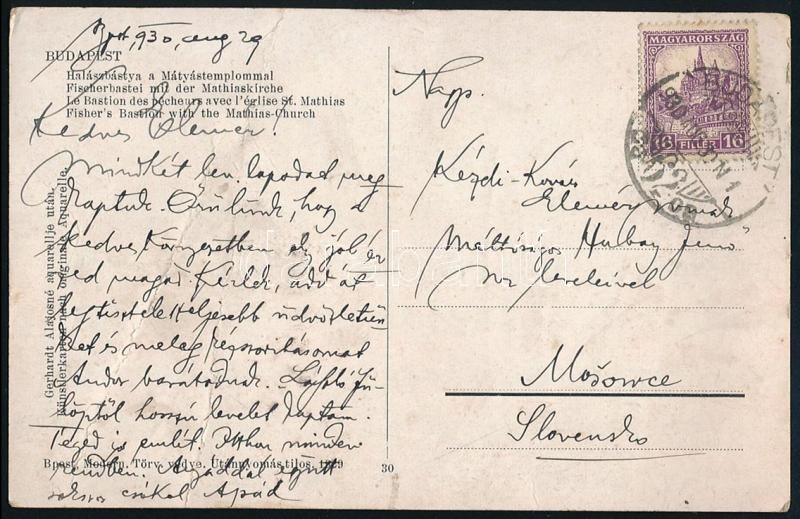 Bpest, 930, aug 29
BUDAPEST
Halászbástya a Mátyástemplommal
Fischerbastei mit der Mathiaskirche
Le Bastion des pêcheurs avec l'église St. Mathias
Fisher's Bastion with the Mathias-Church
Kedves Elemér!
Mindkét lev. lapodat meg
kaptuk. Örülünk, hogy a
kedves környezetben oly jól ér
zed magad. Kérlek, add át
legtiszteletteljesebb üdvözletün
ket és meleg kézszorításomat
Andor barátodnak. László Fü
löptől hosszú levelet kaptam.
Téged is emlit. Itthon minden
rendben. Anyáddal együtt
csókol Apád
Gerhardt Alajosné aquarellje után.
Künstlerkarten nach originale Aquarelle
Bpest, Modern. Törv. védve. Utánnyomás tilos. 1929
30
Nagys.
Kézdi-Kovács
Elemér urnak
Méltóságos Hubay Jenő
úr leveleivel
Mošovce
Slovensko
MAGYARORSZÁG
16 FILLÉR 16
BUDAPEST